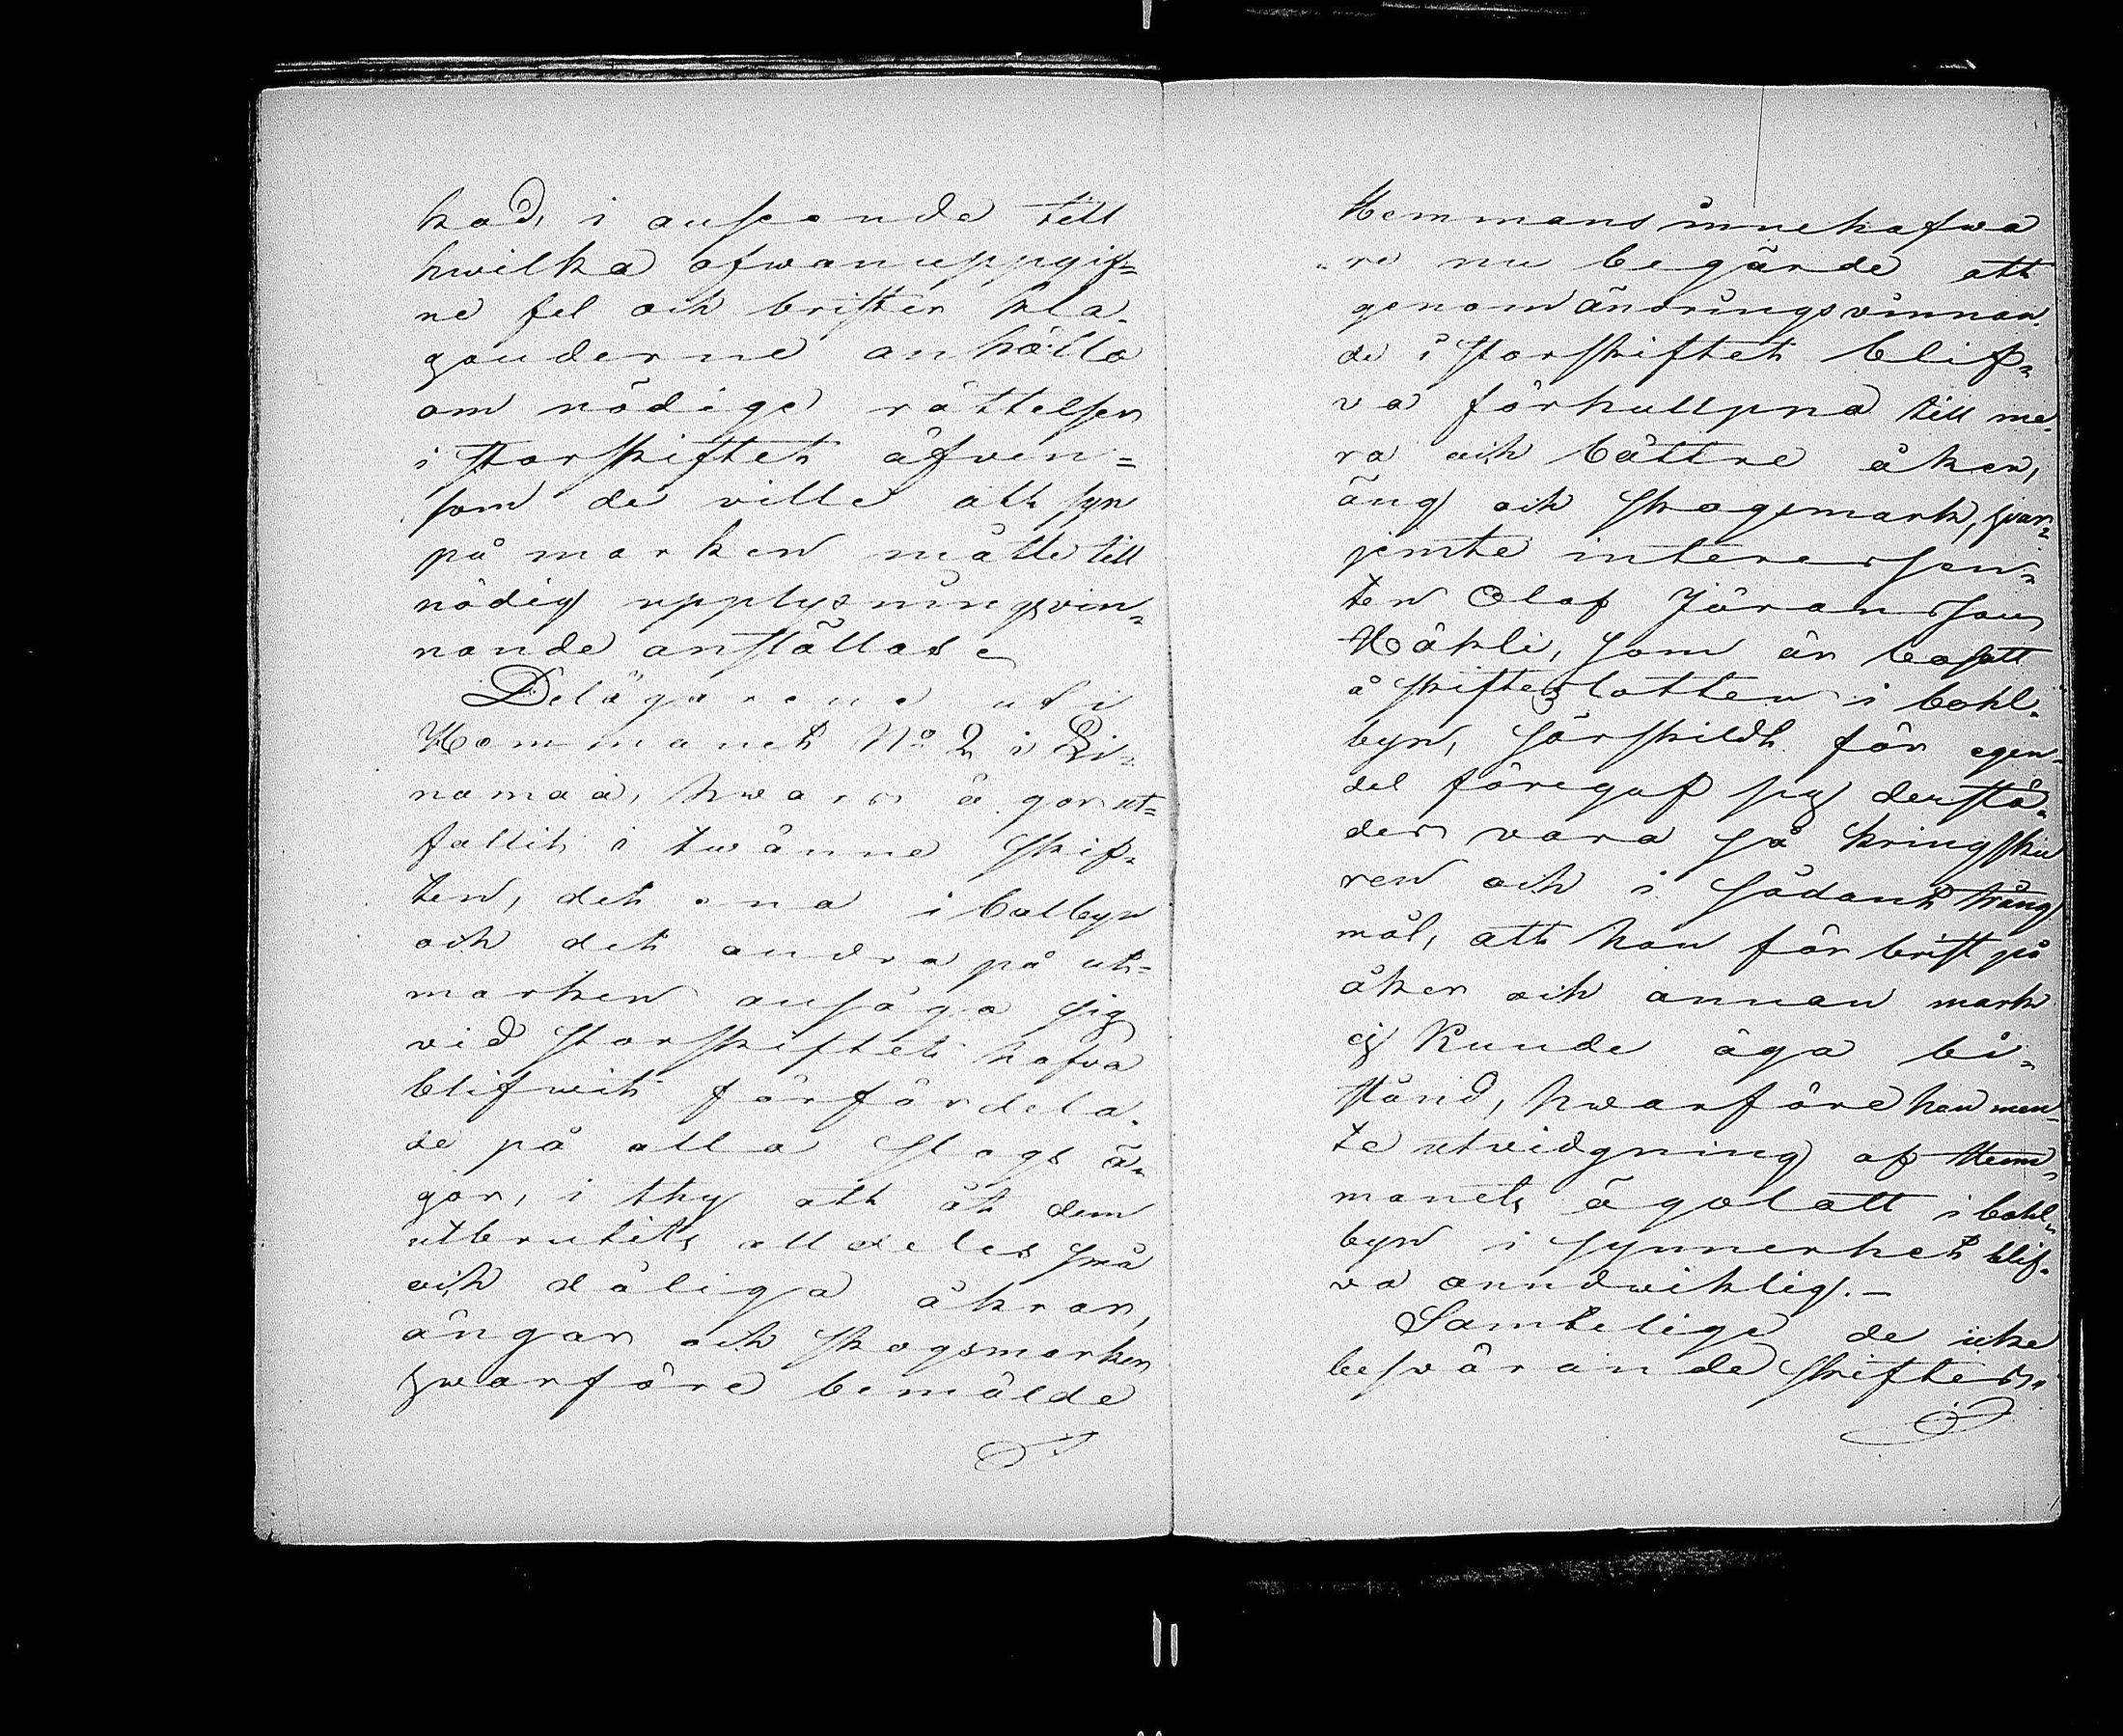 kad, i anseende till
hwilka ofwanuppgif=
ne fel och brister kla-
ganderne anhålla
om nödige rättelser
i storskiftet äfven=
som de ville att syn
på marken måtte till
nödig upplysningsvin=
nande anställas.
Delägarene uti
Hemmanet No 2 i Li=
namaa, hwars ägor ut=
fallit i twänne skif=
ten, det ena i bolbyn
och det andra på ut=
marken ansåga sig
vid storskiftet hafva
blifwit förfördela-
de på alla slags ä=
gor, i thy att åt dem
utbrutits alldeles små
och dåliga åkrar,
ängar och skogsmarker,
hwarföre bemälde
Hemmansinnehafwa
re nu begärde att
genom ändringsvinnan-
de i storskiftet blif=
va förhullpna till me-
ra och bättre åker,
äng och skogsmark, hvar=
jemte interessen=
ten Olof Jöransson
Häkli, som är bosatt
å skifteslotten i bohl-
byn, särskildt för egen
del föregaf sig derstä-
des vara så kringsku
ren och i sådant trång
mål, att han för brist på
åker och annan mark
ej kunde äga bi=
stånd, hwarföre han men=
te utvidgning af Hem=
manets ägolott i bohl=
byn i synnerhet blif-
va oundwiklig.-
Samtelige de icke
besvärande skiftes=